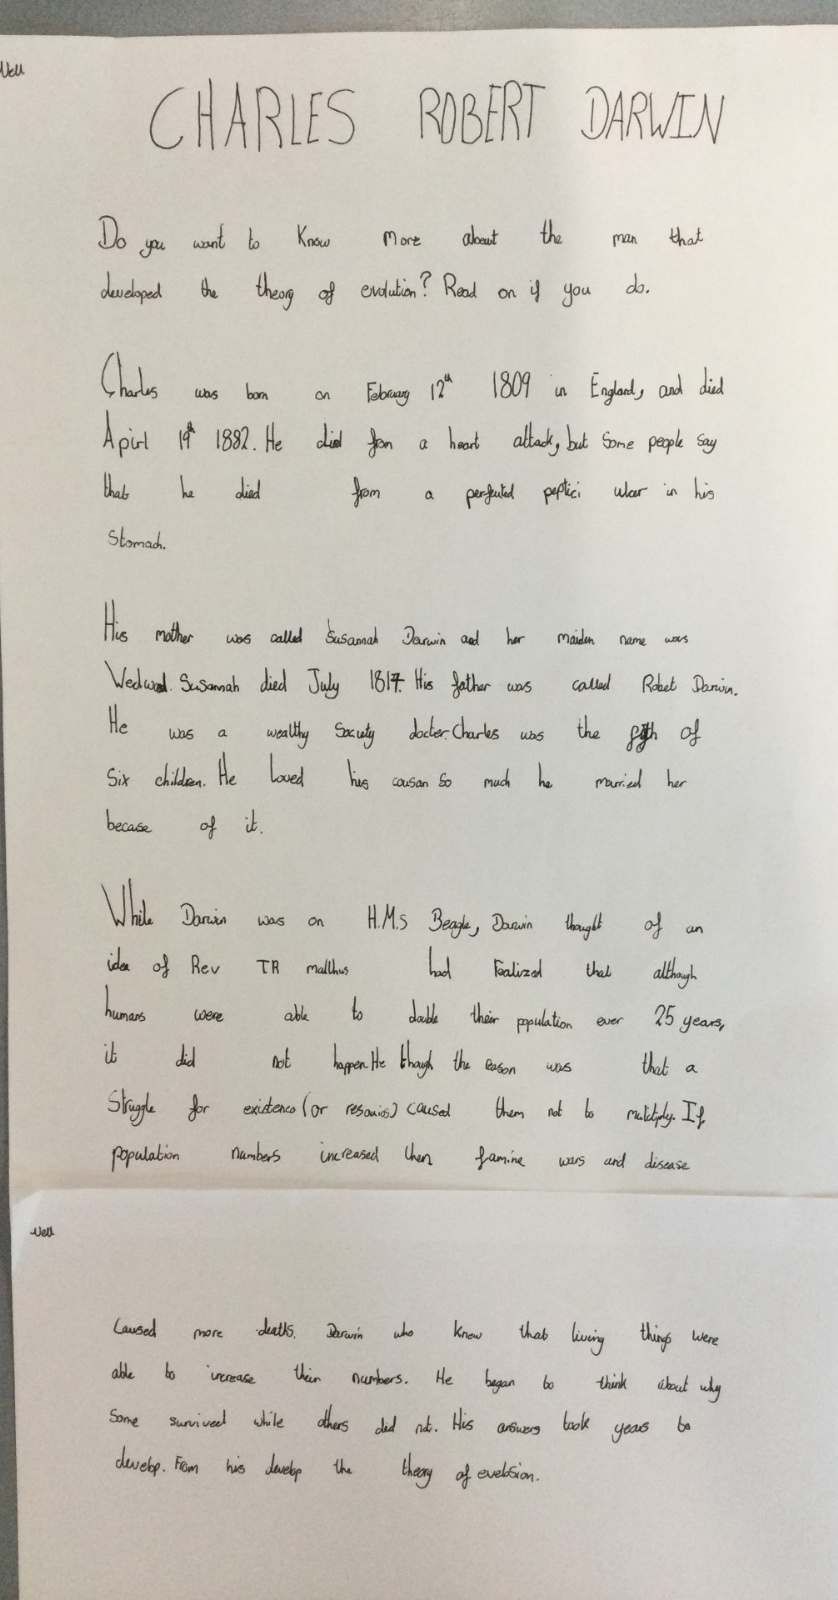 Nell
CHARLES ROBERT DARWIN
Do you want to Know More about the man that
developed the theory of evolution? Read on if you do.
Charles was born on February 12th 1809 in England, and died
Apirl 19th 1882. He died from a heart attack, but Some people say
that he died from a perfeuted peptici ulcer in his
Stomach.
His mother was called Susannah Darwin and her maiden name was
Wedwod. Susannah died July 1817. His father was called Robet Darwin.
He was a wealthy Society docter. Charles was the fifth of
Six children. He loved his cousan So much he married her
becase of it.
While Darwin was on H.M.S Beagle, Darwin thought of an
idea of Rev TR malthus had realized that although
humans were able to double their population ever 25 years,
it did not happen. He though the reason was that a
Struggle for existence (or ) caused them not to multiply. If
population numbers increased then famine wars and disease
Nell
Caused more deaths. Darwin who knew that living things were
able to increase their numbers. He began to think about why
Some survived while others did not. His answers took years to
develop. From his develop the theory of evelosion.